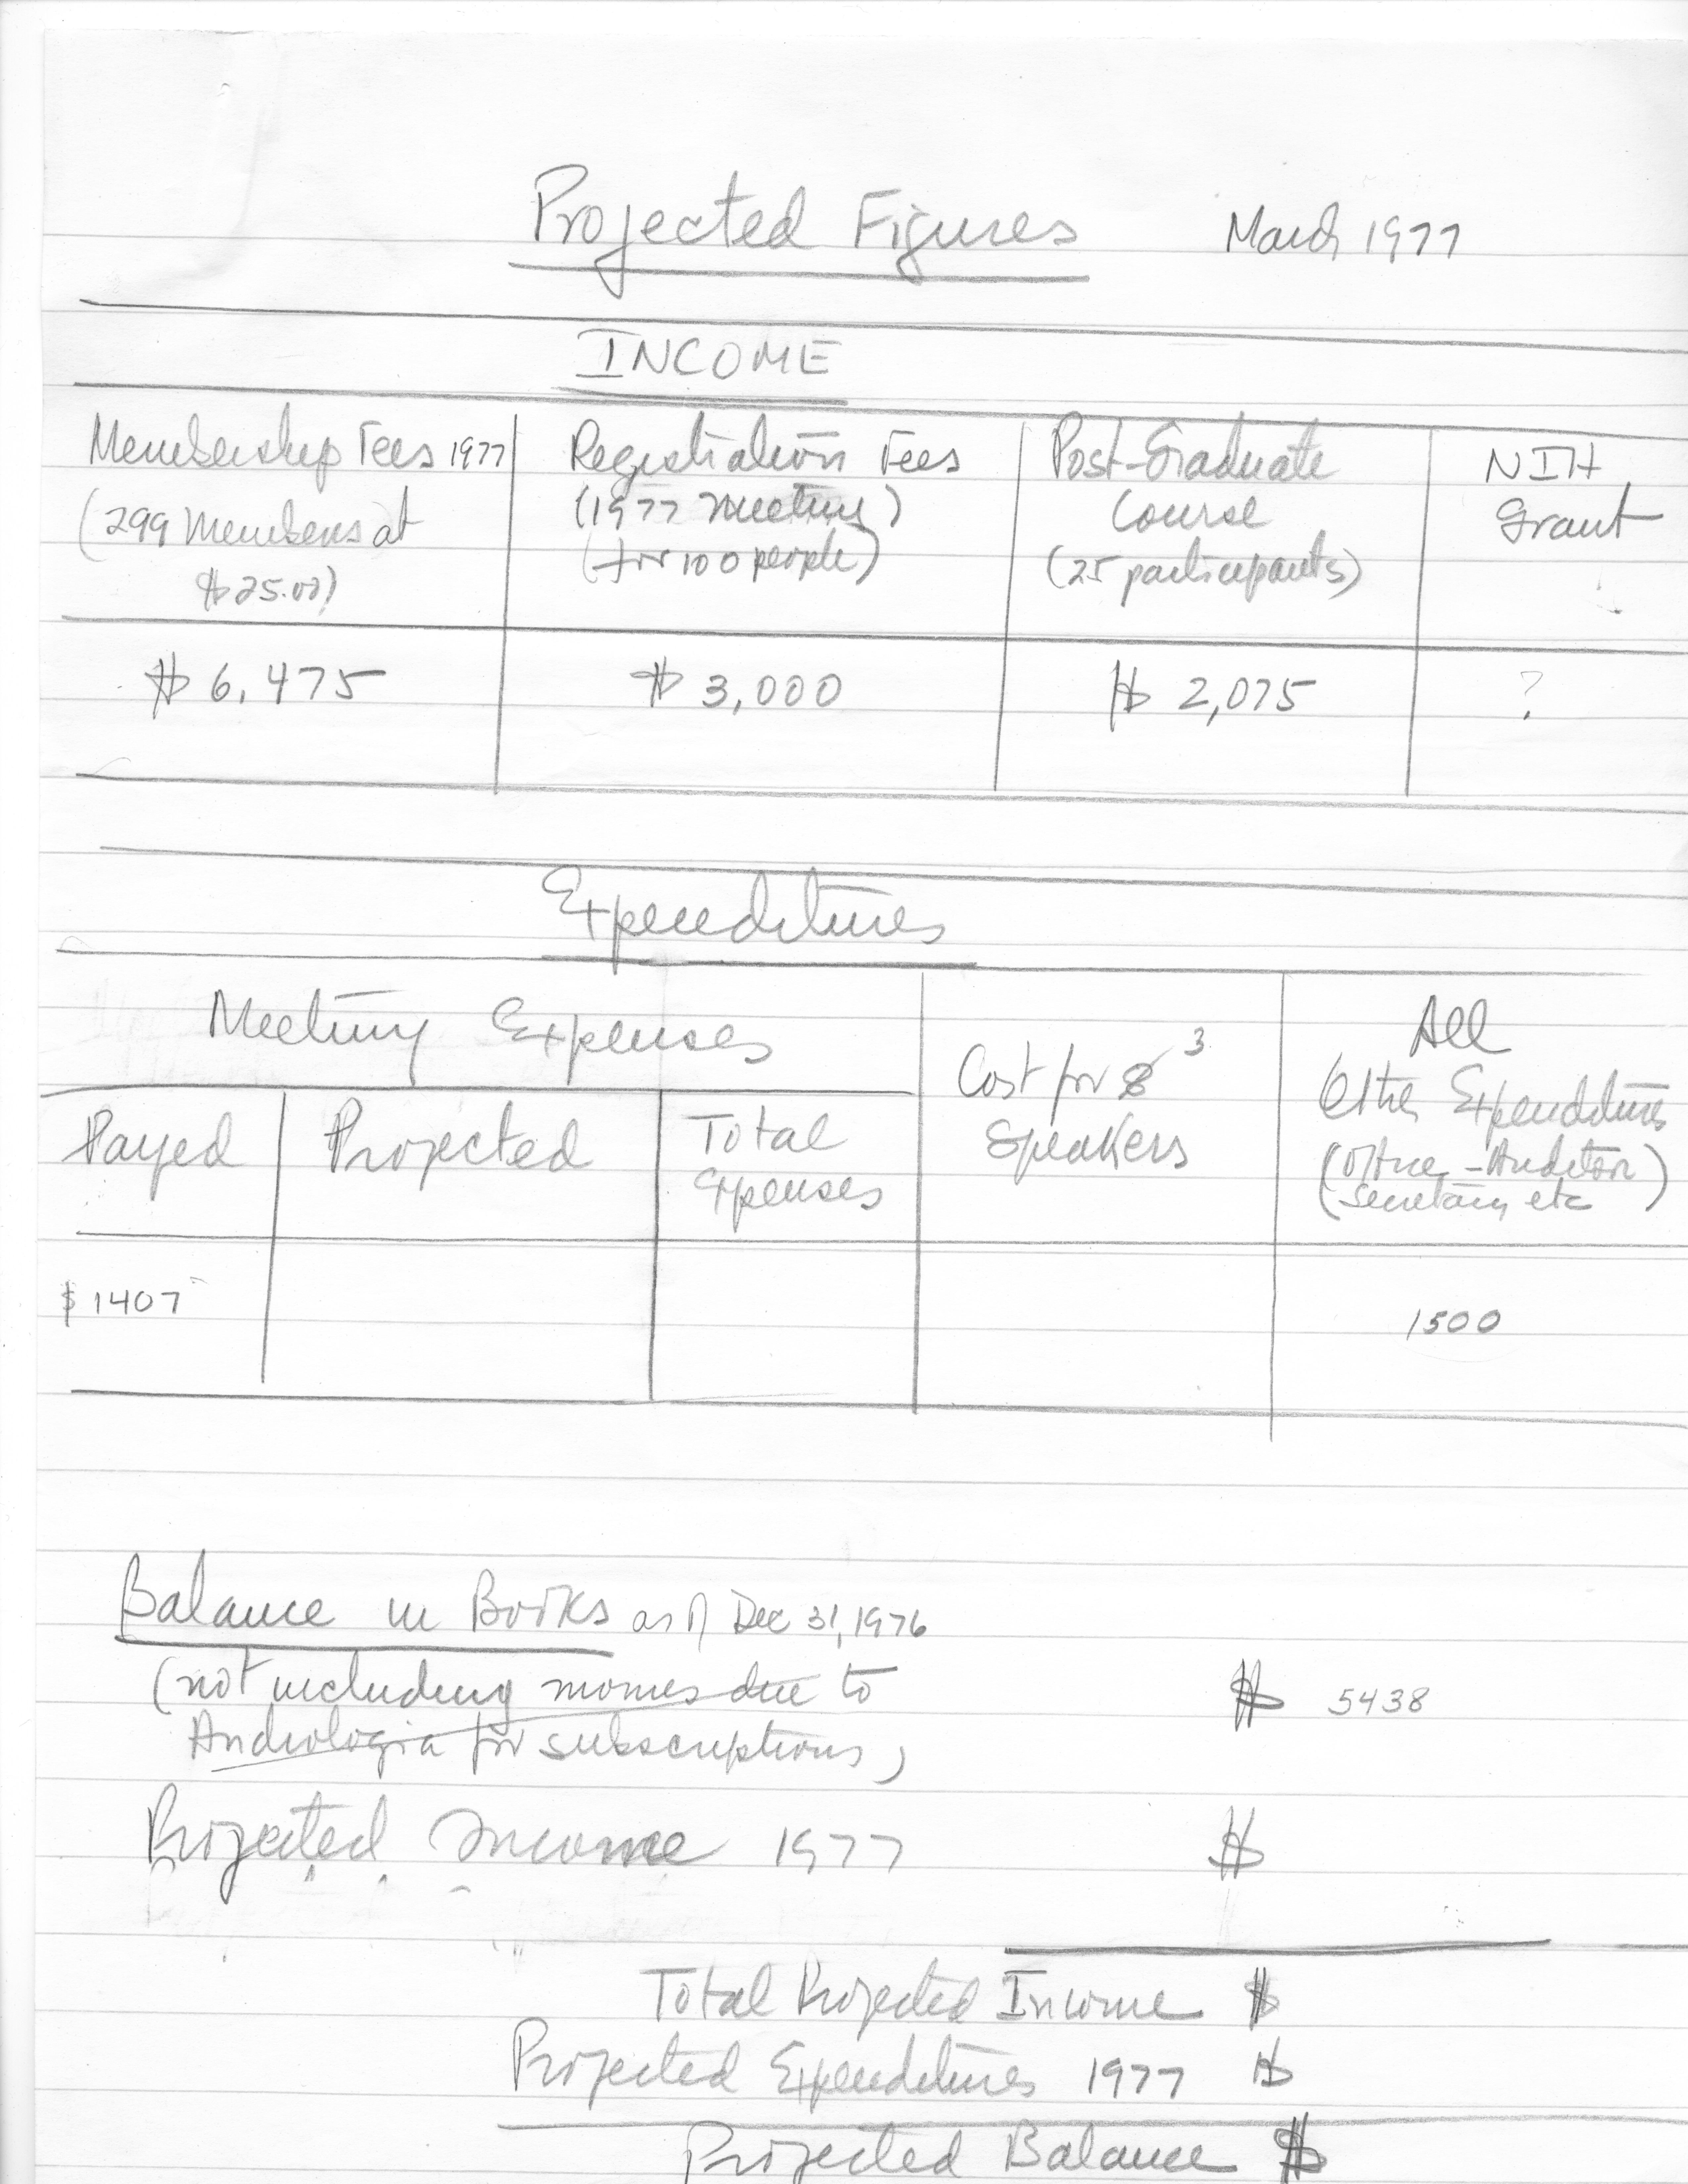 Projected Figures March 1977
INCOME
Membership Fees 1977
(299 Members at
$25.00)
Registration Fees
(1977 Meeting)
(for 100 people)
Post-Graduate
Course
(25 participants)
NIH
Grant
$ 6,475
$ 3,000
$ 2,075
?
Expenditures
Meeting Expenses
Payed
Projected
Total
Expenses
Cost for 3
Speakers
All
Other Expenditures
(Office - Auditor
Secretary etc)
$ 1407
1500
Balance in Books as of Dec 31, 1976
(not including monies due to
Andrologia for subscriptions)
$ 5438
Projected Income 1977 $
Total Projected Income $
Projected Expenditures 1977 $
Projected Balance $